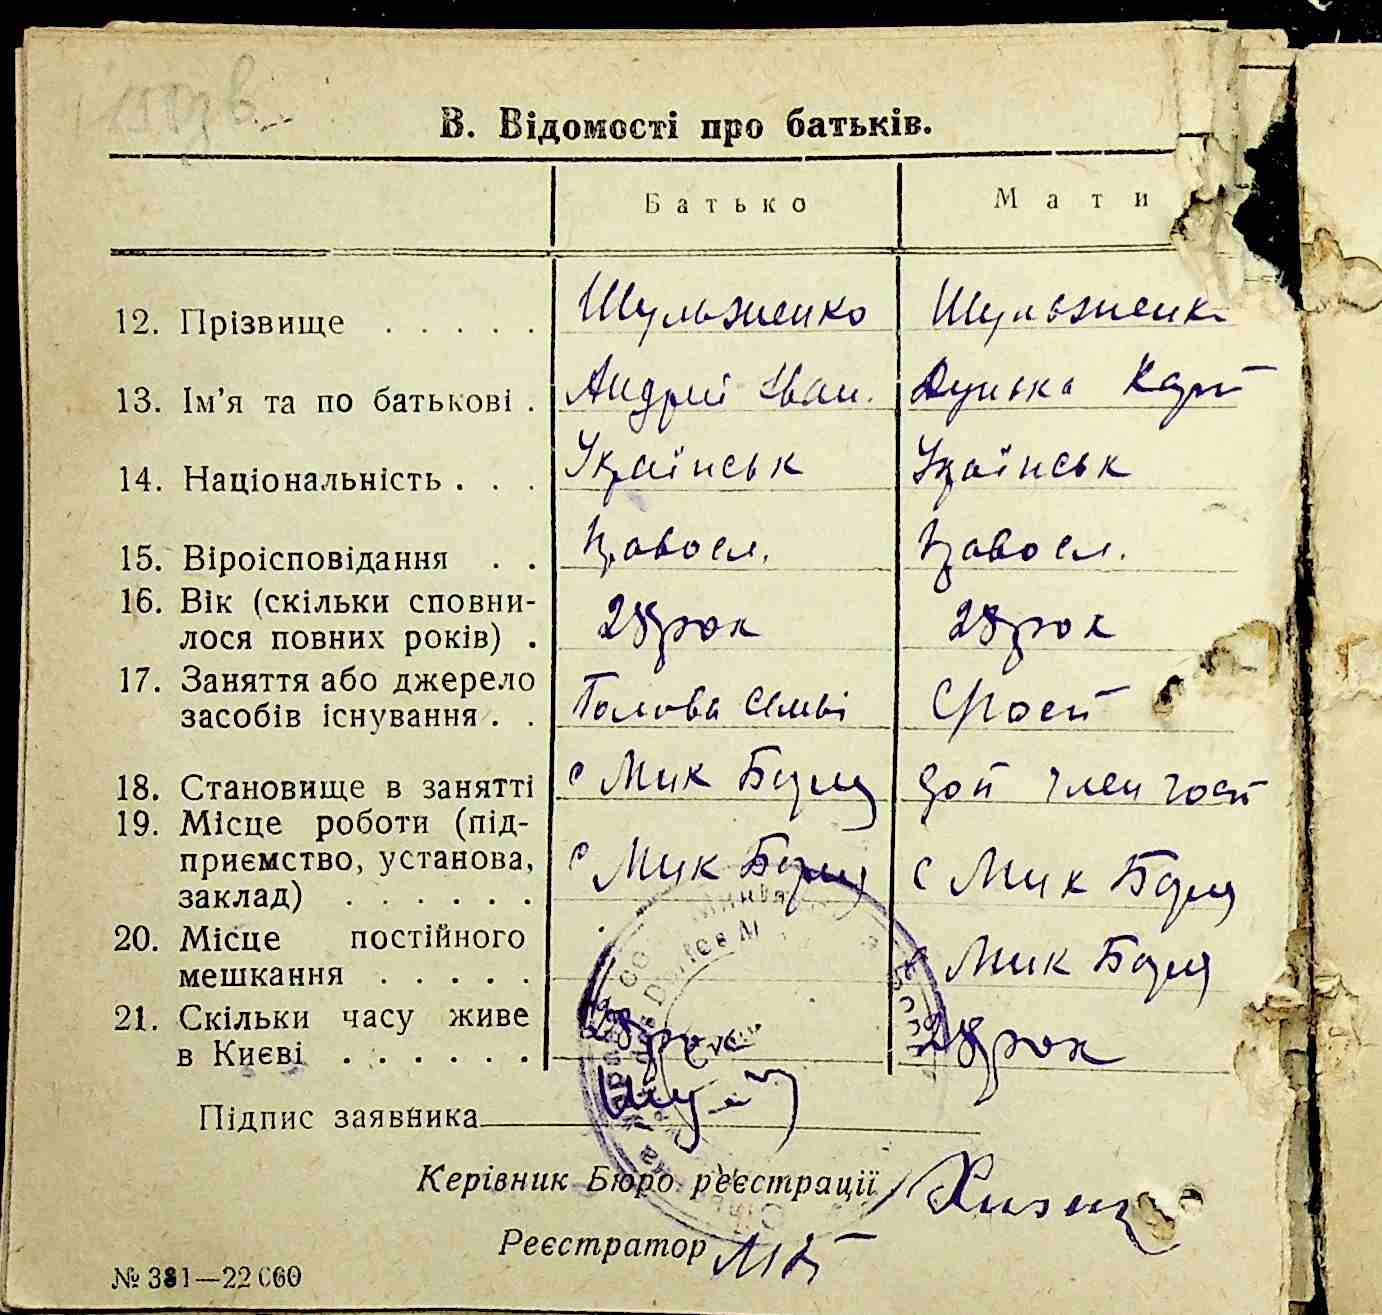 В. Відомості про батьків.
Батько Мати
12. Прізвище . . . . . Шульженко Шульженк
13. Ім’я та по батькові . Андрій Іван. Дунька Карп
14. Національність . . . Українськ Українськ
15. Віроісповідання . . Правосл. Правосл.
16. Вік (скільки сповни-
лося повних років) . 28 рок 28 рок
17. Заняття або джерело
засобів існування . . Голова семьі
18. Становище в занятті с Мик Борщ доп член госп
19. Місце роботи (під-
приємство, установа,
заклад) . . . . . . с Мик Борщ с Мик Борщ
20. Місце постійного
мешкання . . . . . с Мик Борщ
21. Скільки часу живе
в Києві . . . . . . 28 рок 28 рок
Підпис заявника
Керівник Бюро реєстрації
Реєстратор
№ 381—22060